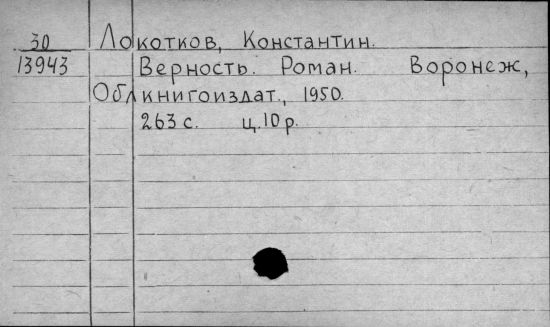 30 Локотков, Константин.
13943 Верность. Роман. Воронеж,
Облкнигоиздат., 1950.
263 с. ц. 10 р.